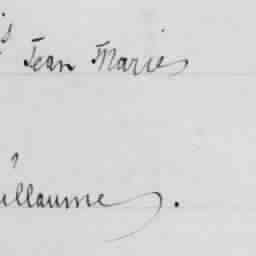 Jean Marie
uillaume.